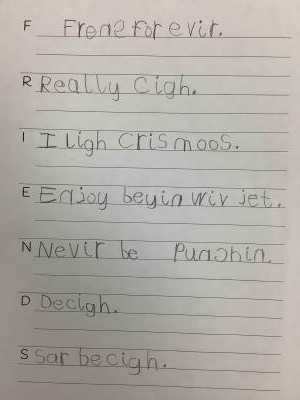 F Frene for evir.
R Really Cigh.
I I ligh Crismoos.
E Enjoy beyin wiv jet.
N Nevir be Punshin.
D Decigh.
S Sar becigh.